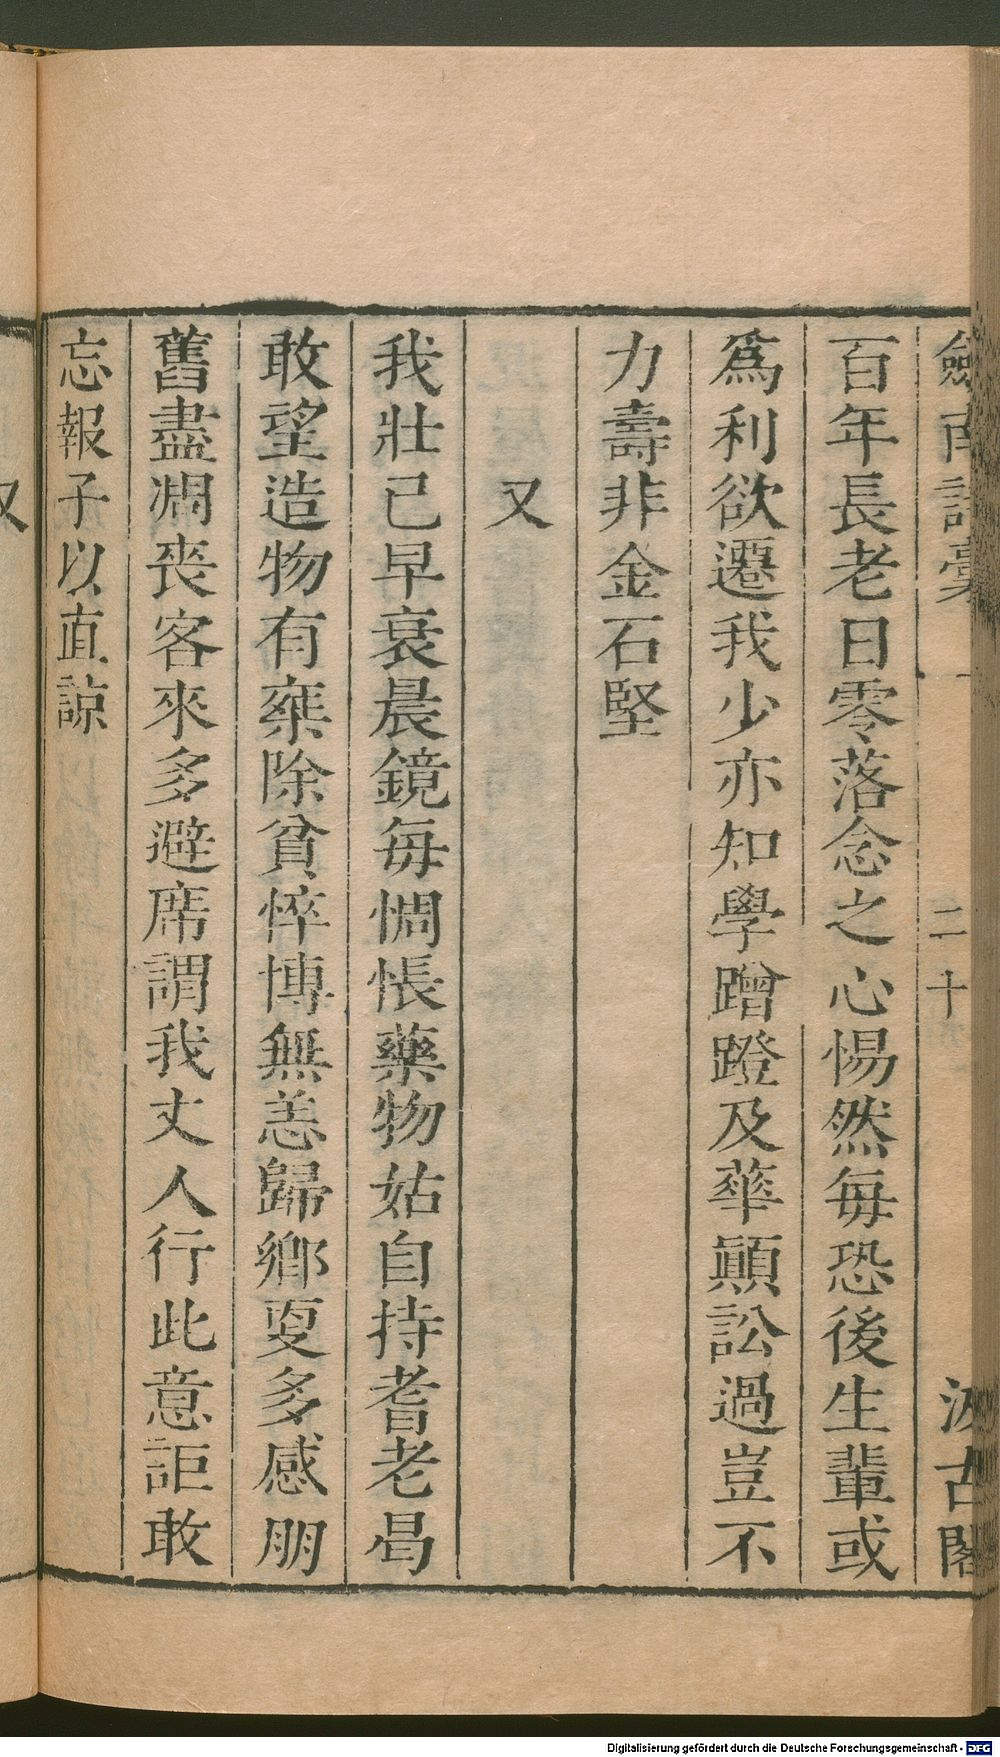 劒南詩稾
二十
汲古閣
百年長老日零落念之心惕然每恐後生輩或
爲利欲遷我少亦知學蹭蹬及華顛訟過豈不
力壽非金石堅
又
我壯已早衰晨鏡每惆悵藥物姑自持耆老曷
敢望造物有乘除貧悴博無恙歸鄉更多感朋
舊盡凋喪客來多避席謂我丈人行此意詎敢
忘報子以直諒
又
Digitalisierung gefördert durch die Deutsche Forschungsgemeinschaft - DFG